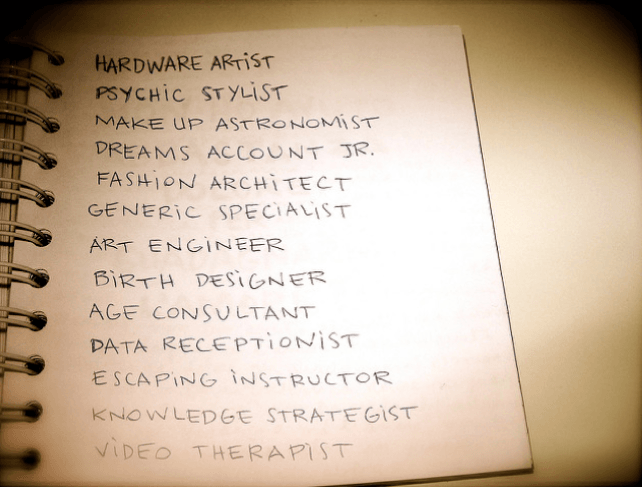 HARDWARE ARTiST
PSYCHiC STYLiST
MAKE UP ASTRONOMiST
DREAMS ACCOUNT JR.
FASHiON ARCHiTECT
GENERiC SPECiALiST
ART ENGiNEER
BiRTH DESiGNER
AGE CONSULTANT
DATA RECEPTiONiST
ESCAPiNG iNSTRUCTOR
KNOWLEDGE STRATEGiST
ViDEO THERAPiST